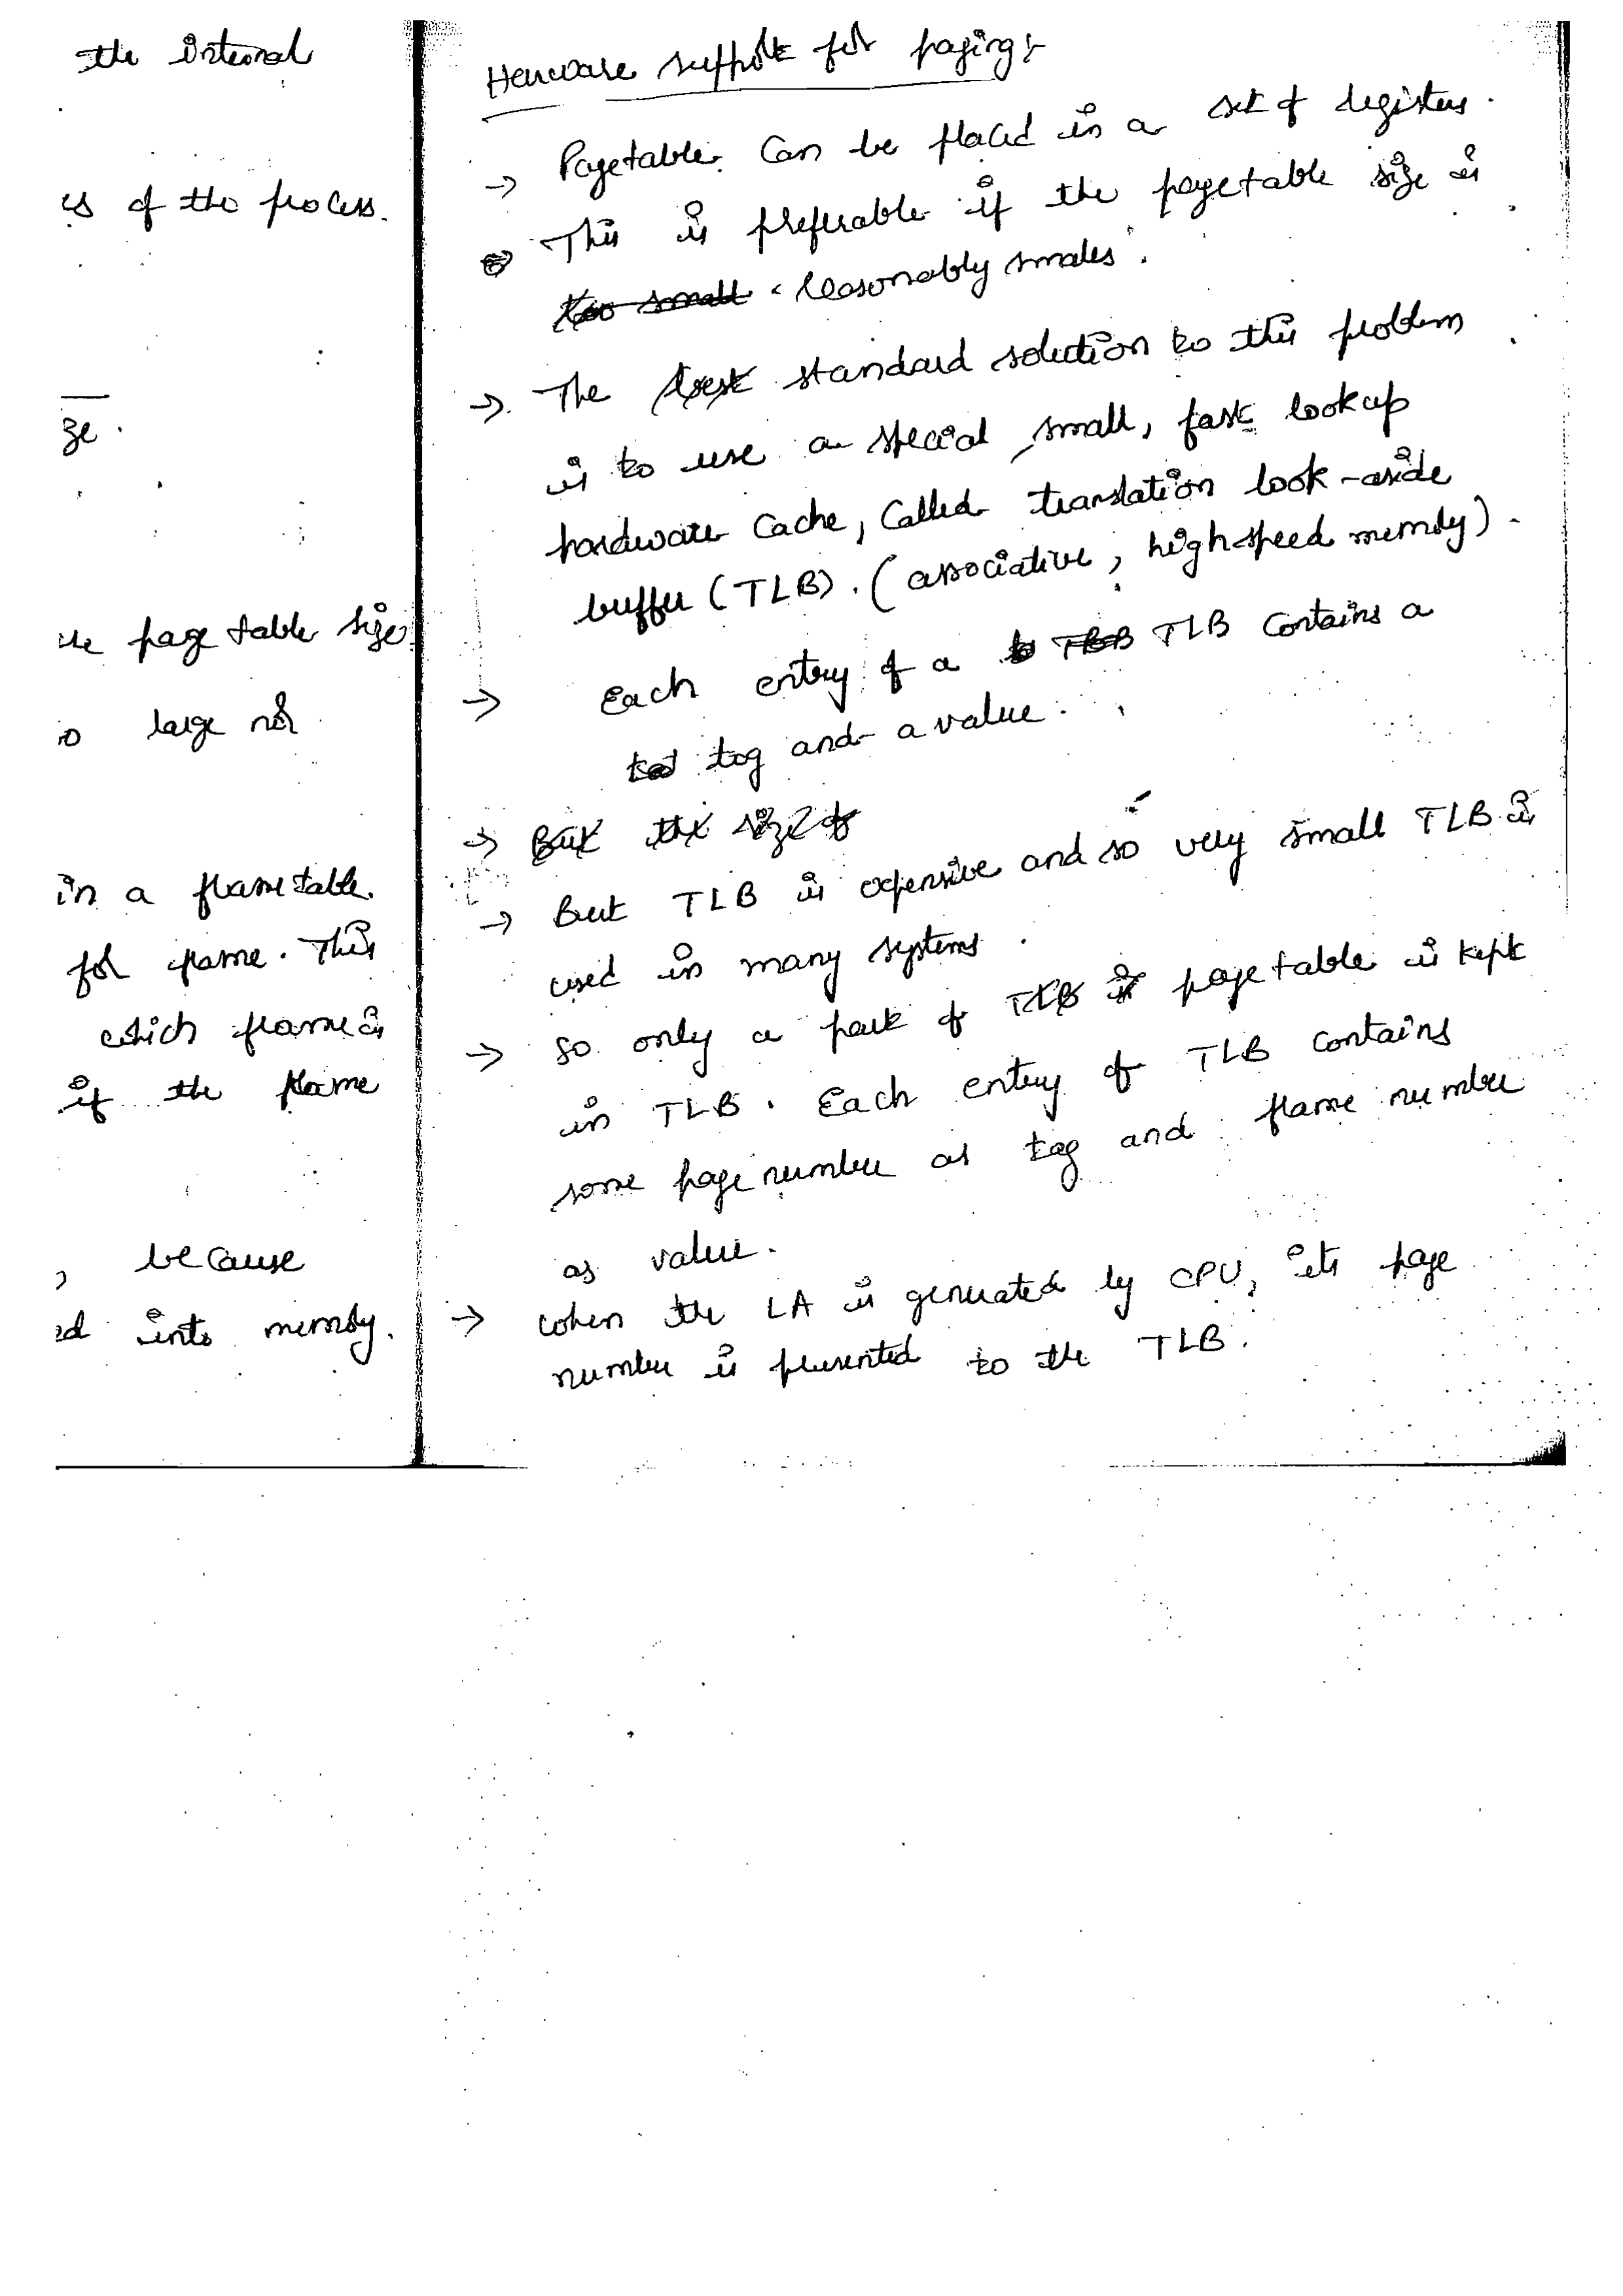 the internal
es of the process.
ze.
the page table size
o large no
in a frame table.
for frame. This
which frame is
if the frame
because
ed into memory.
Harware support for paging:-
→ Pagetable. Can be placed in a set of registers.
→ This is preferable if the pagetable size is
too small. reasonably smaller.
→ The best standard solution to this problem
is to use a special small, fast lookup
hardware Cache, Called translation look-aside
buffer (TLB). (associative, highspeed memory).
→ Each entry of a TLB contains a
tag and a value.
→ But the size of
→ But TLB is expensive and so very small TLB is
used in many systems.
→ So only a part of TLB is page table is kept
in TLB. Each entry of TLB contains
some page number as tag and frame number
as value.
→ when the LA is generated by CPU, its page
number is presented to the TLB.